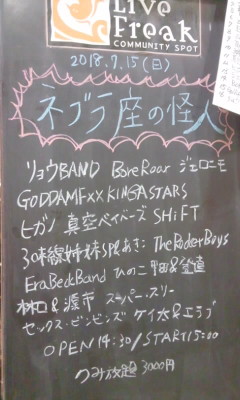 Live
Freak
COMMUNITY SPOT
2018.7.15(日)
ネブラ座の怪人
リョウBAND BoreRoar ジェロニモ
GODDAMFXX KINGASTARS
ヒガノ 真空ベイバーズ SHiFT
3味線姉妹SP,あき: The RoderBoys
EraBeckBand ひのこ
林口& スーパースリー
セックス・ビンビンズ ケイ水&エラブ
OPEN 14:30/START 15:00
つみ放題 3000円